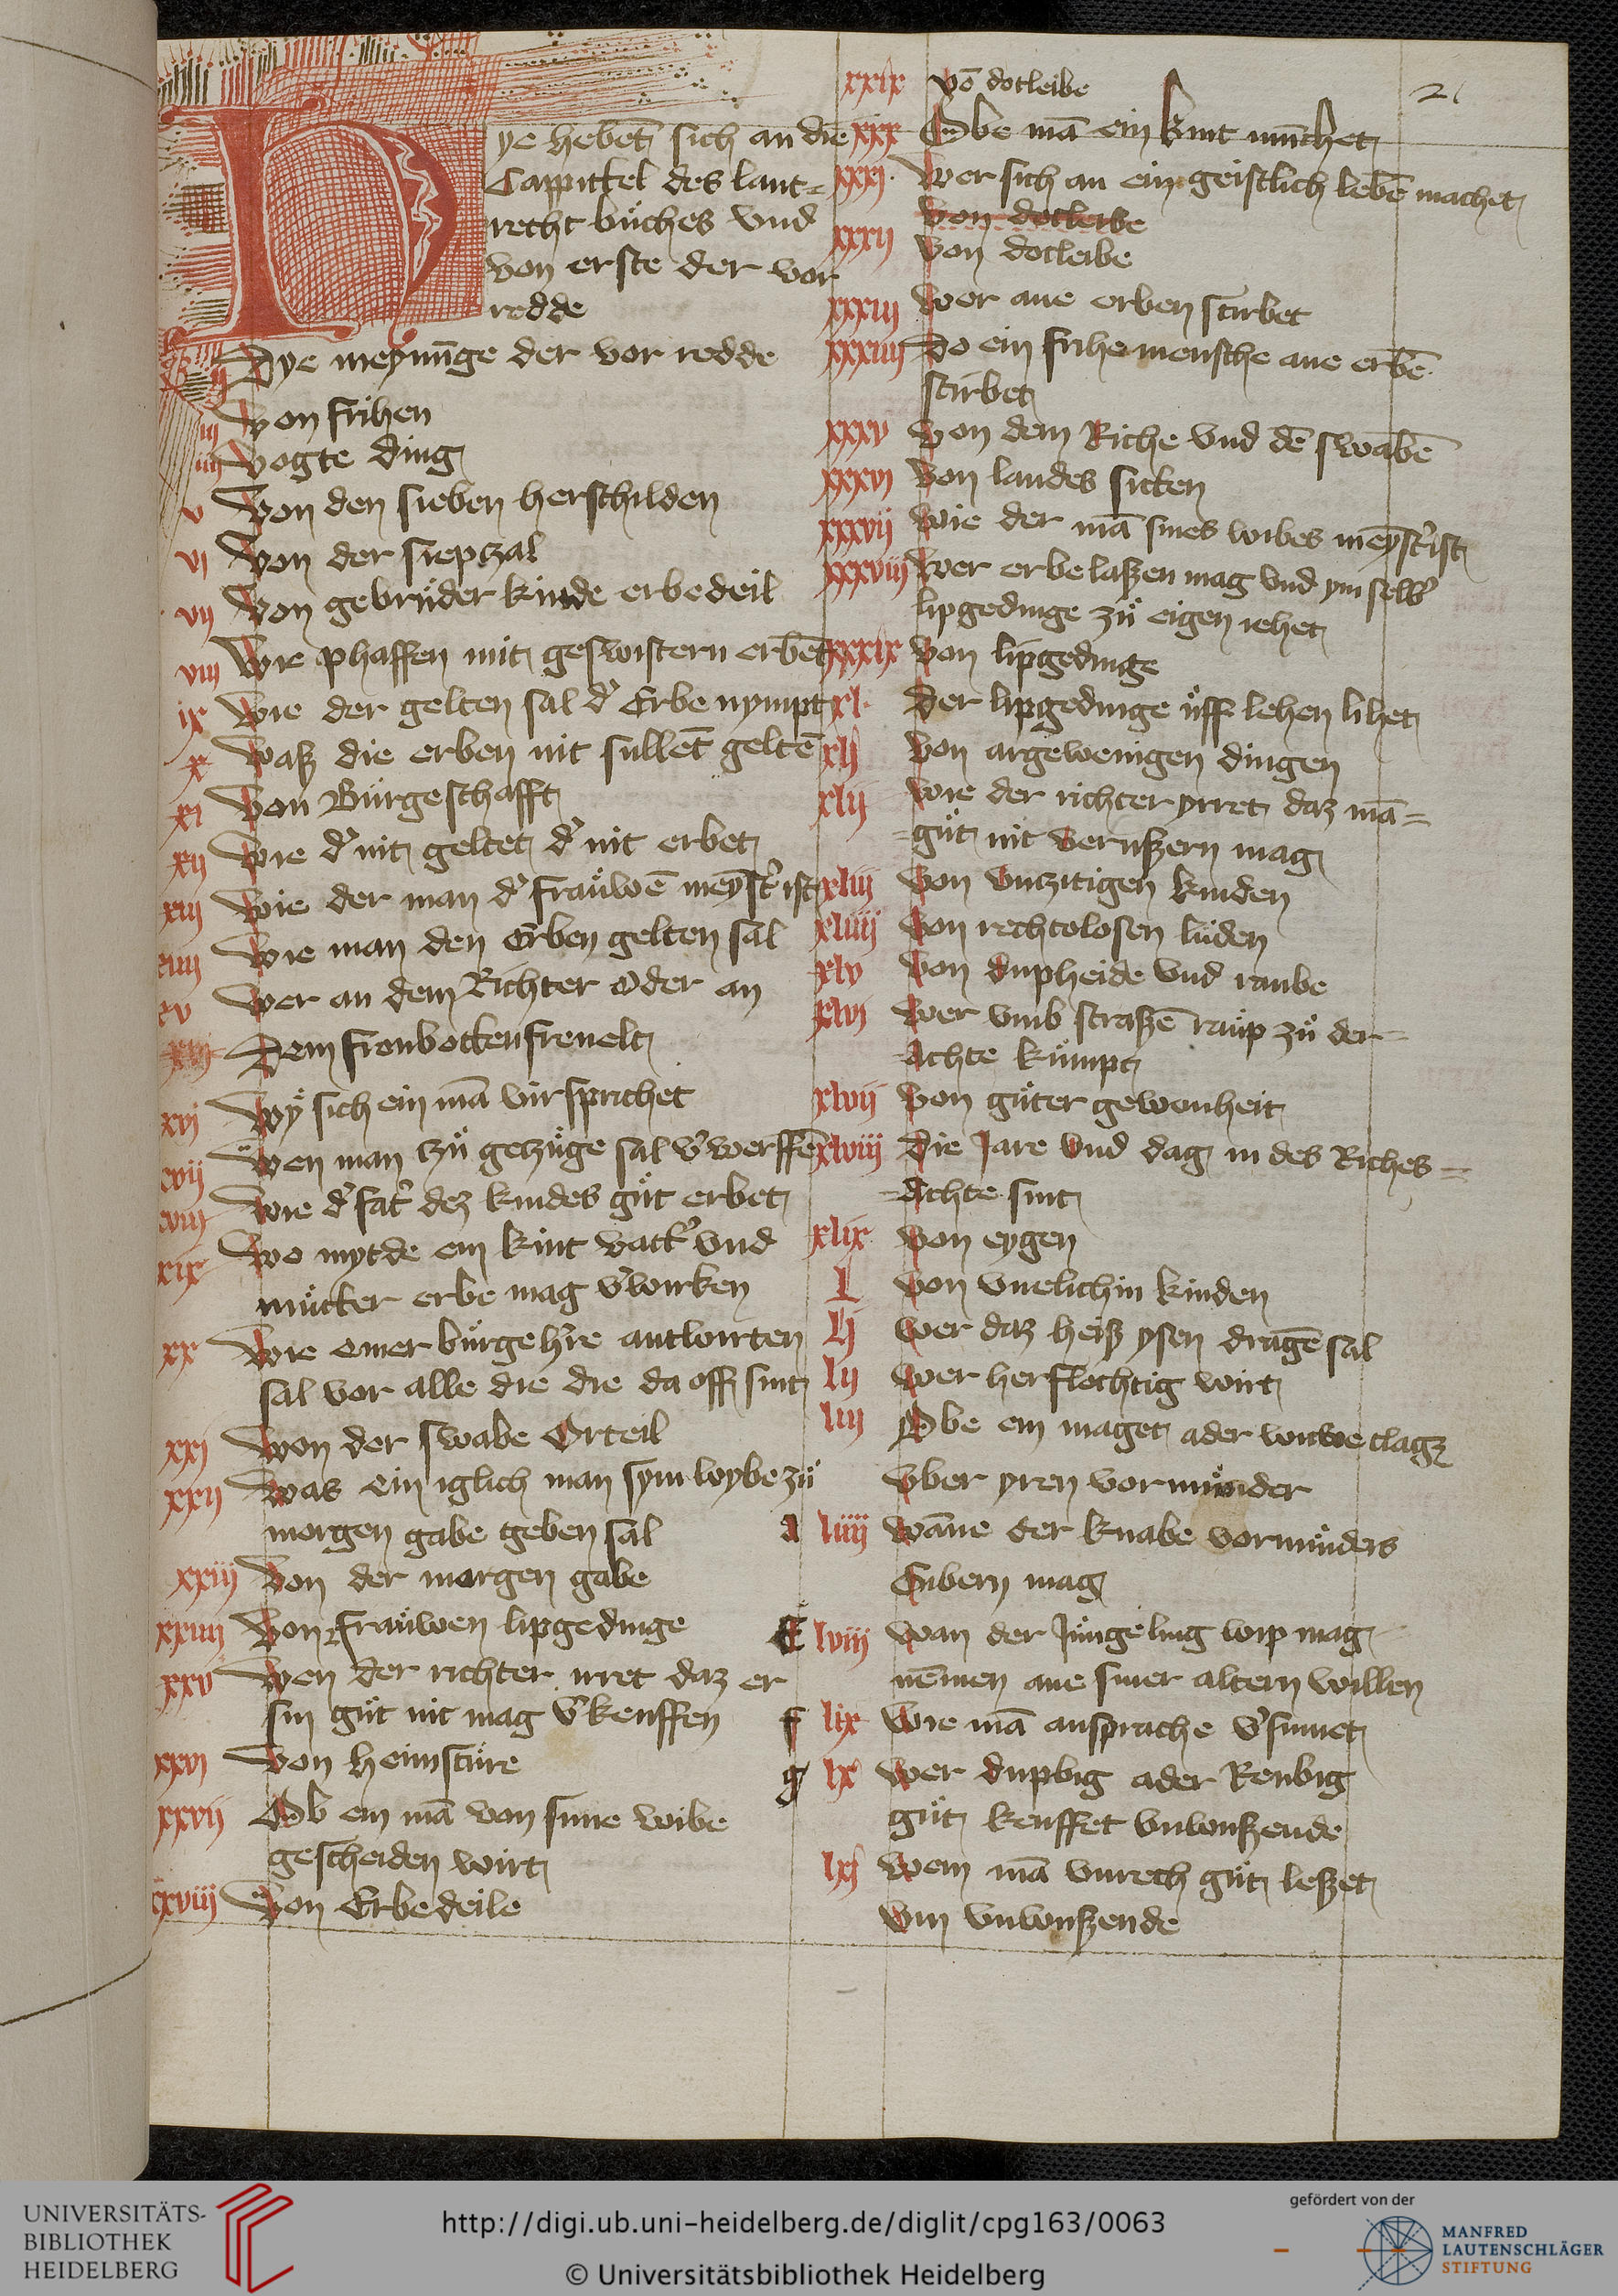 Hye hebet̄ sich an die
Cappittel des lant=
recht bůches vnd
von erste der vor
redde
ij Dye meynūge der vor redde
iij von frihen
iiij vogte ding
v Von den sieben herschilden
vi Von der siepzal
vij Von gebrüder kinde erbedeil
viij Wie phaffen mit geswistern erbēt
ix Wie der gelten sal d' Erbe nympt
x waß die erben nit sullet̄ geltē
xi Von Bürgeschafft
xij Wie d' nit geltet d' nit erbet
xiij Wie der man d' fraůwē meyst' ist
xiiij Wie man den Erben gelten sal
xv Wer an dem Richter Oder an
Dem fronbotten frevelt
xvj Wÿ sich ein mā virsprichet
xvij Wen man zů gezüge sal v'werffē
xviij Wie d' fat' dez kindes gůt erbet
xix Wo mytde ein kint vatt' vnd
můtter erbe mag v'wirken
xx Wie einer bürge h're antwrten
sal vor alle die die da off sint
xxj Von der swabe Orteil
xxij Was ein iglich man sym wybe zů
morgen gabe geben sal
xxiij Von der morgen gabe
xxiiij Von fraůwen lipgedinge
xxv Wen der richter irret daz er
sin gůt nit mag v'keuffen
xxvi Von heimstüre
xxvij Ob ein mā von sime wibe
gescheiden wirt
xxviij Von Erbedeile
21
xxix Vō dotleibe
xxx Obe mā ein kint mūchet
xxxj Wer sich an ein geistlich lebē machet
von dotleibe
xxxij Von dotleibe
xxxiij Wer ane erben stirbet
xxxiiij Do ein frihe mensche ane erbē
stirbet
xxxv Von dem Riche vnd dē swabē
xxxvj Von landes sitten
xxxvij Wie der mā sines wibes meyst' ist
xxxviij Wer erbe laßen mag vnd ym selb'
lipgedinge zů eigen iehet
xxxix Von lipgedinge
xl Der lipgedinge uff lehen lihet
xlj Von argewenigen dingen
xlij Wie der richter yrret daz mā
=gůt nit verußern mag
xliij Von vnzitigen kinden
xliiij Von rechtolosen lüden
xlv Von dupheide vnd raube
xlvj Wer vmb straßē raüp zů der=
Achte kümpt
xlvij Von gůter gewonheit
xlviij Die Jare vnd dag in des Riches=
=Achte sint
xlix Von eygen
L Von vnelichin kinden
Lj Wer daz heiß ysen dragē sal
lij Wer herflochtig wirt
liij Obe ein maget ader witwe clagz
vber yren vormůnder
d liiij Wāne der knabe vormůnders
Enbern mag
E lviij Wan der Jüngeling wip mag
nēmen ane siner altern willen
f lix Wie mā ansprache v'sumet
g lx Wer dupbig ader Reubig
gůt keuffet vnwißende
lxj Wem mā vnrech gůt leßet
vm vnwißende
UNIVERSITÄTS-
BIBLIOTHEK
HEIDELBERG
http://digi.ub.uni-heidelberg.de/diglit/cpg163/0063
© Universitätsbibliothek Heidelberg
gefördert von der
MANFRED
LAUTENSCHLÄGER
STIFTUNG